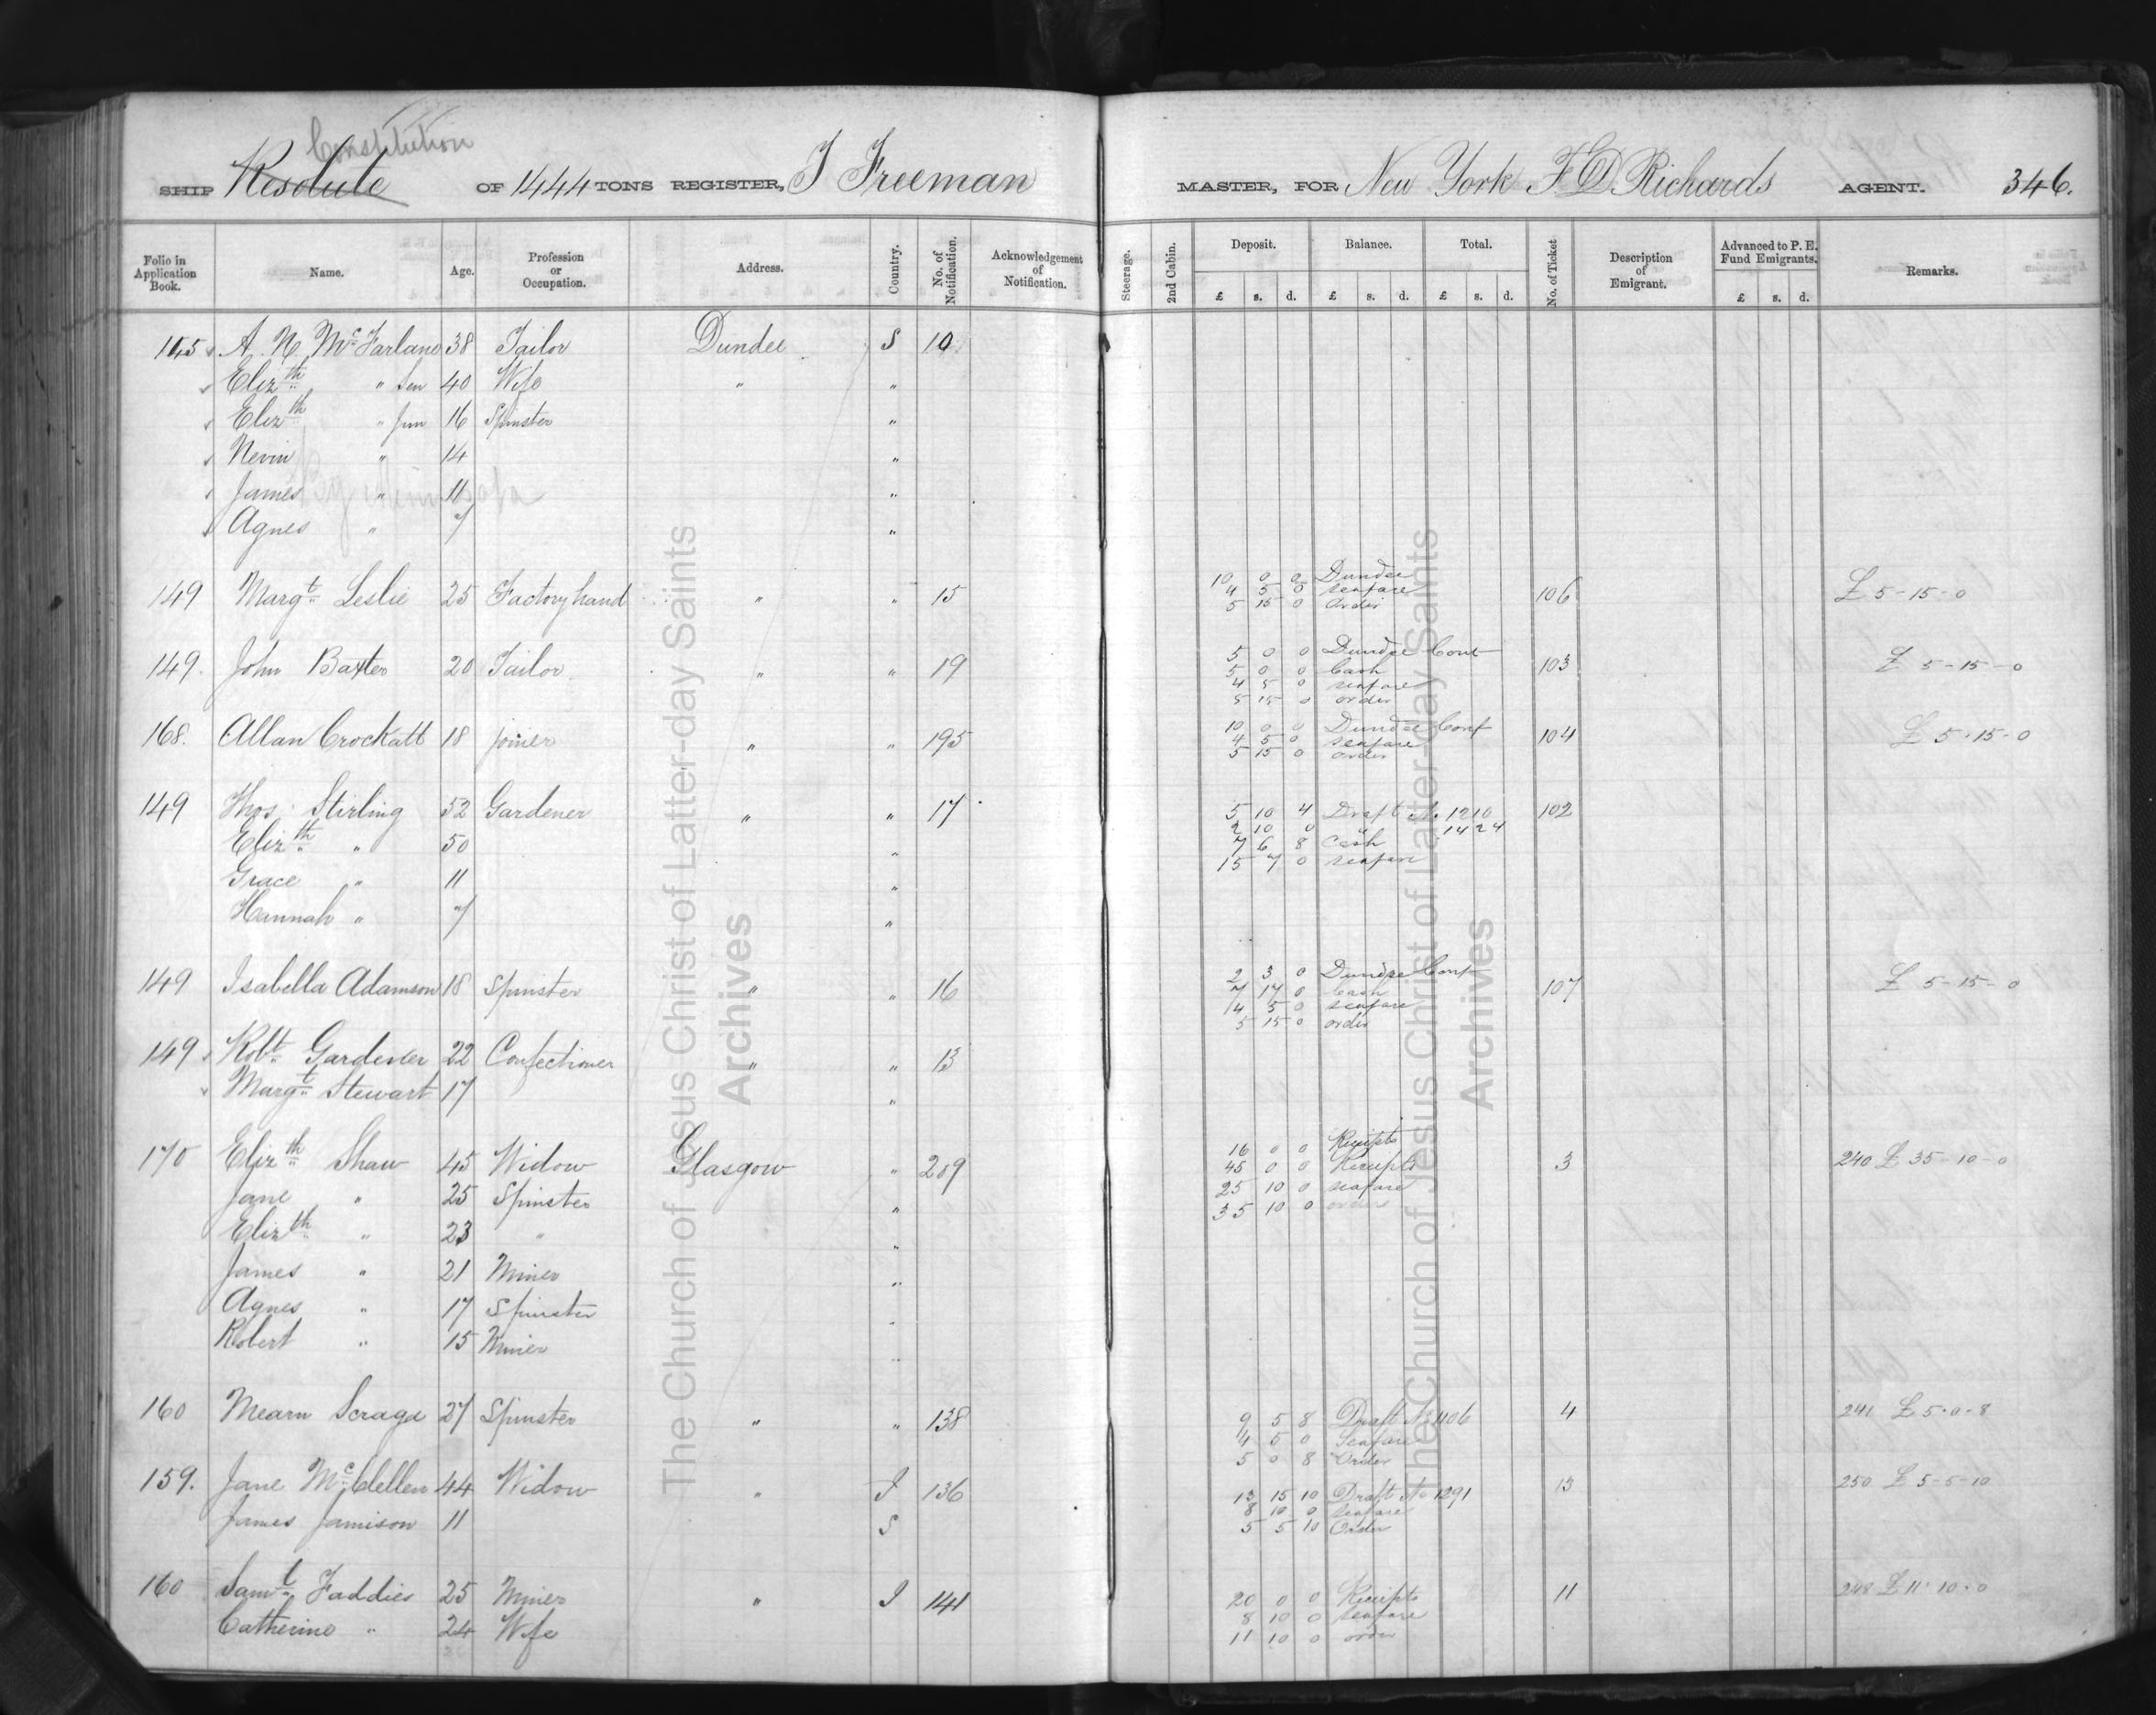 Constitution
SHIP Resolute OF 1444 TONS REGISTER, J Freeman MASTER, FOR New York F D Richards AGENT. 346.
Folio in Application Book. Name. Age. Profession or Occupation. Address. Country. No. of Notification. Acknowledgement of Notification. Steerage. 2nd Cabin. Deposit. £ s. d. Balance. £ s. d. Total. £ s. d. No. of Ticket Description of Emigrant. Advanced to P. E. Fund Emigrants. £ s. d. Remarks.
A. N. McFarlane 38 Tailor Dundee S 10
Elizth " Sen 40 Wife " "
Elizth " Jun 16 Spinster "
Nevin " 14 "
James " 11 "
Agnes " 7 "
10 0 0 Dundee
149 Margt Leslie 25 Factory hand " " 15 4 5 0 seafare 106 £ 5-15-0
5 15 0 Order
5 0 0 Dundee Conf
149. John Baxter 20 Tailor " " 19 5 0 0 Cash 103 £ 5-15-0
4 5 0 seafare
5 15 0 order
10 0 0 Dundee Conf
168. Allan Crockatt 18 joiner " " 195 4 5 0 seafare 104 £ 5-15-0
5 15 0 order
149 Thos Stirling 52 Gardener " " 17 5 10 4 Draft No 1210 102
2 10 0 " 1424
Elizth " 50 " 7 6 8 Cash
15 7 0 seafare
Grace " 11 "
Hannah " 7 "
2 3 0 Dundee Conf
149 Isabella Adamson 18 Spinster " " 16 7 17 0 Cash 107 £ 5-15-0
4 5 0 seafare
5 15 0 order
149 Robt Gardener 22 Confectioner " " 13
Margt Stewart 17 "
16 0 0 Receipts
170 Elizth Shaw 45 Widow Glasgow " 209 45 0 0 Receipts 3 240 £ 35-10-0
Jane " 25 Spinster " 25 10 0 seafare
35 10 0 order
Elizth " 23 " "
James " 21 Miner "
Agnes " 17 Spinster "
Robert " 15 Miner "
160 Mearn Scrage 27 Spinster " " 138 9 5 8 Draft No 1106 4 241 £ 5-0-8
4 5 0 Seafare
5 0 8 Order
159. Jane McClellen 44 Widow " I 136 13 15 10 Draft No 1291 13 250 £ 5-5-10
8 10 0 seafare
James Jamison 11 S 5 5 10 Order
160 Saml Faddies 25 Miner " I 141 20 0 0 Receipts 11 248 £ 11-10-0
8 10 0 seafare
Catherine " 24 Wife 11 10 0 order
The Church of Jesus Christ of Latter-day Saints
Archives
The Church of Jesus Christ of Latter-day Saints
Archives